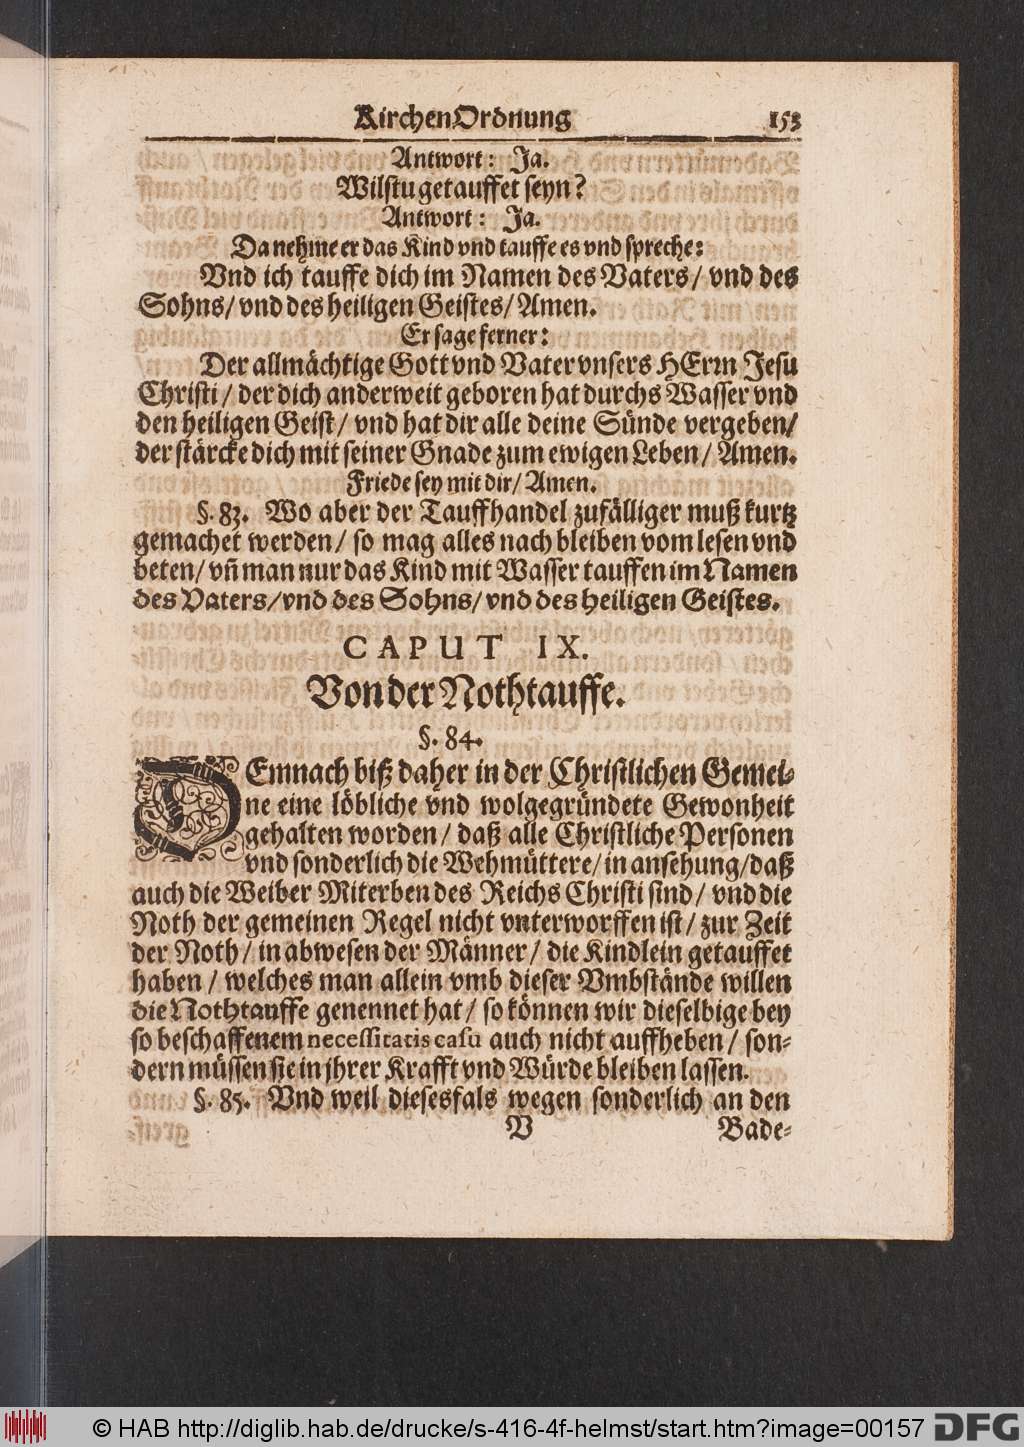 KirchenOrdnung 153
Antwort: Ja.
Wilstu getauffet seyn?
Antwort: Ja.
Da nehme er das Kind vnd tauffe es vnd spreche:
Vnd ich tauffe dich im Namen des Vaters/ vnd des
Sohns/ vnd des heiligen Geistes/ Amen.
Er sage ferner:
Der allmächtige Gott vnd Vater vnsers HErrn Jesu
Christi/ der dich anderweit geboren hat durchs Wasser vnd
den heiligen Geist/ vnd hat dir alle deine Sünde vergeben/
der stärcke dich mit seiner Gnade zum ewigen Leben/ Amen.
Friede sey mit dir/ Amen.
§. 83. Wo aber der Tauffhandel zufälliger muß kurtz
gemachet werden/ so mag alles nach bleiben vom lesen vnd
beten/ vñ man nur das Kind mit Wasser tauffen im Namen
des Vaters/ vnd des Sohns/ vnd des heiligen Geistes.
CAPUT IX.
Von der Nothtauffe.
§. 84.
DEmnach biß daher in der Christlichen Gemei-
ne eine löbliche vnd wolgegründete Gewonheit
gehalten worden/ daß alle Christliche Personen
vnd sonderlich die Wehmüttere/ in ansehung/ daß
auch die Weiber Miterben des Reichs Christi sind/ vnd die
Noth der gemeinen Regel nicht vnterworffen ist/ zur Zeit
der Noth/ in abwesen der Männer/ die Kindlein getauffet
haben/ welches man allein vmb dieser Vmbstände willen
die Nothtauffe genennet hat/ so können wir dieselbige bey
so beschaffenem necessitatis casu auch nicht auffheben/ son-
dern müssen sie in jhrer Krafft vnd Würde bleiben lassen.
§. 85. Vnd weil diesesfals wegen sonderlich an den
V Bade-
© HAB http://diglib.hab.de/drucke/s-416-4f-helmst/start.htm?image=00157 DFG